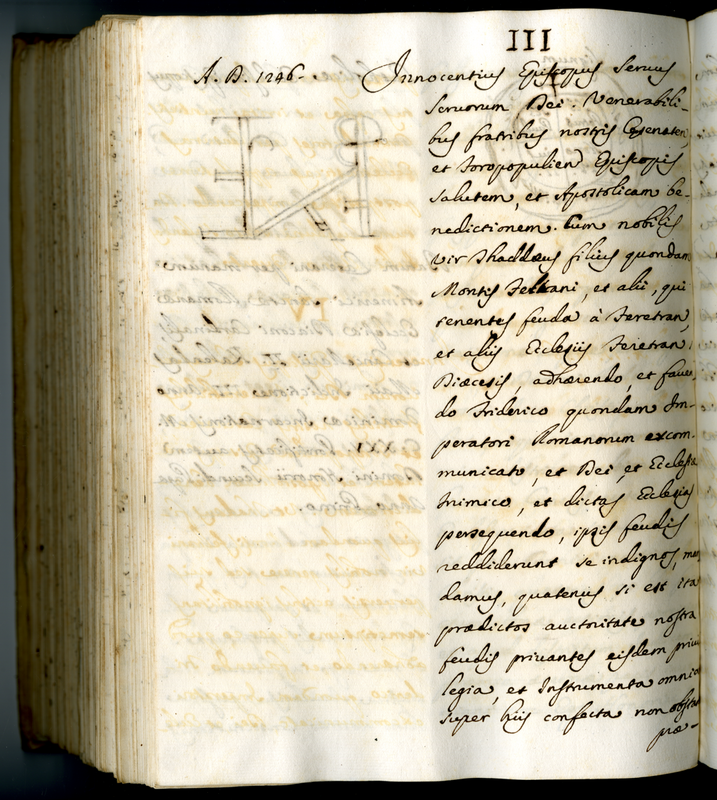 III
A. D. 1246.
Innocentius Episcopus Servus
Servorum Dei. Venerabili-
bus fratribus nostris Cesenaten,
et Foropopulien Episcopis
Salutem, et Apostolicam be-
nedictionem. Cum nobilis
vir Thaddeus filius quondam
Montis Feltrani, et alii, qui
tenentes feuda à Feretran,
et aliis Ecclesiis Feretran.
Diæcesis, adhærendo, et faven
do Friderico quondam Im-
peratori Romanorum excom-
municato, et Dei, et Ecclesiæ
Inimico, et dictas Ecclesias
persequendo, ipsis feudis
reddiderunt se indignos, man
damus, quatenus si est ita
prædictos auctoritate nostra
feudis privantes eisdem privi
legia, et Instrumenta omnia
super hiis confecta non obstan
præ-